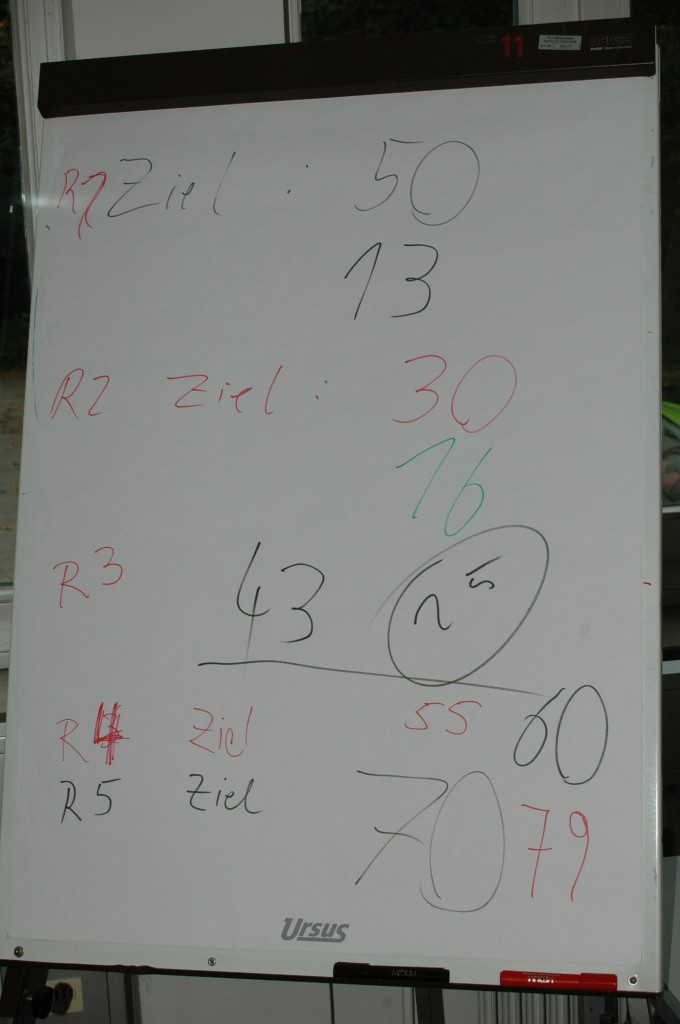 11
R1 Ziel : 50
13
R2 Ziel : 30
16
R3 43 25
R4 Ziel 55 60
R5 Ziel 70 79
Ursus